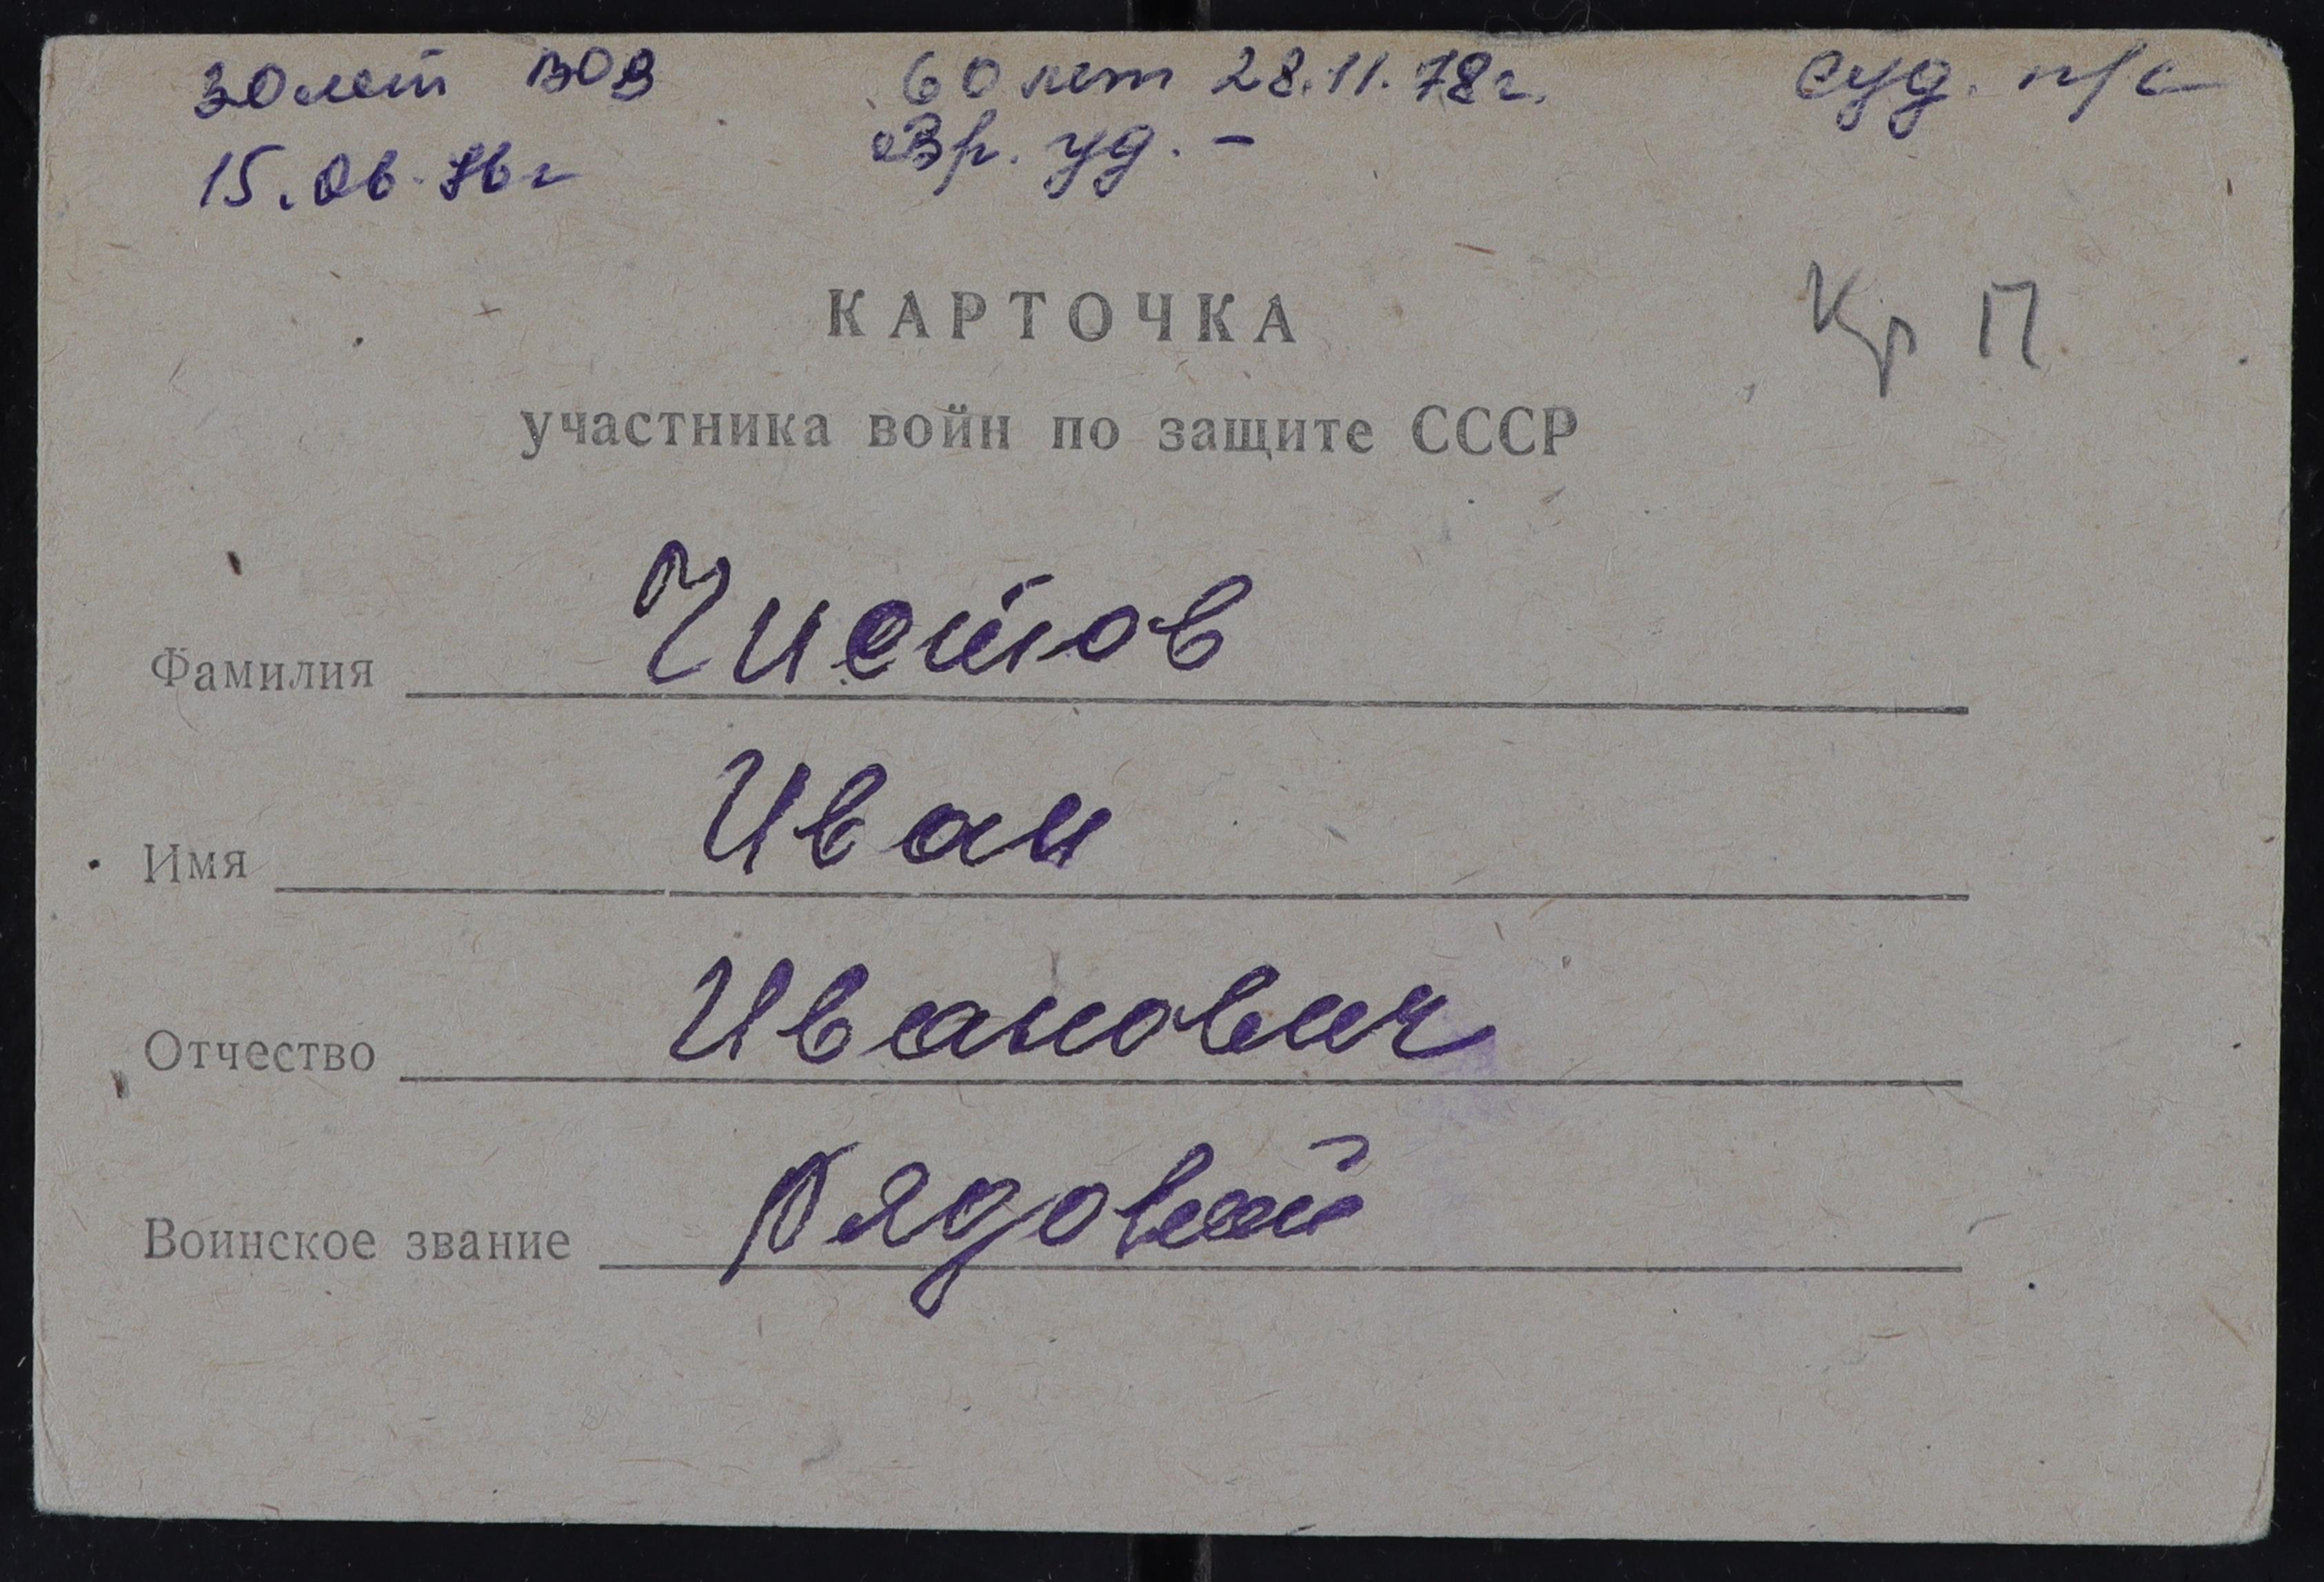 30 лет ВОВ 60 лет 28.11.78г. суд. п/с
15.06.76г Вр. уд. -
Кр П
КАРТОЧКА
участника войн по защите СССР
Фамилия Чистов
Имя Иван
Отчество Иванович
Воинское звание Рядовой